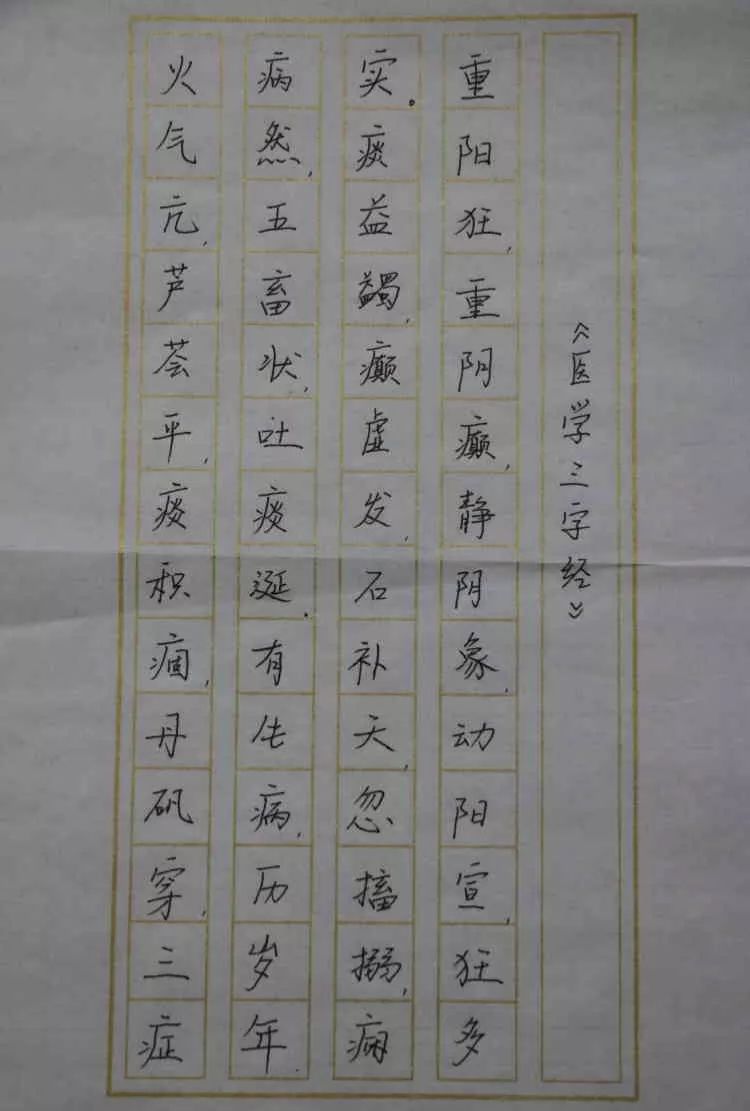 《医学三字经》
重阳狂,重阴癫,静阴象,动阳宣,狂多
实。痰益蠲,癫虚发,石补天,忽搐搦,痫
病然,五畜状,吐痰涎.有生病,历岁年
火气亢,芦荟平,痰积痼,丹矾穿,三症